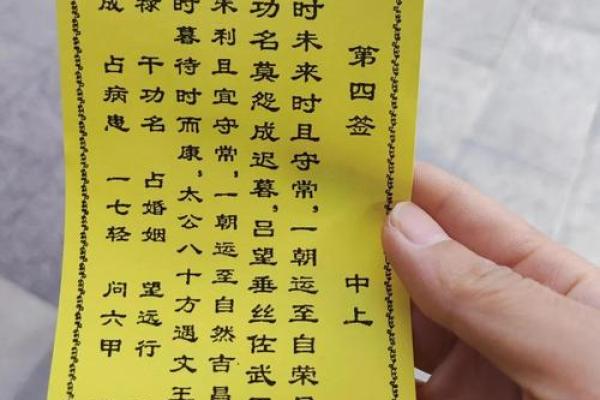 第四签 中上
时未来时且守常,一朝运至自荣
功名莫怨成迟暮,吕望垂丝佐武
未利且宜守常,一朝运至自然吉昌
时暮待时而康,太公八十方遇文王
禄 干功名 占婚姻 望远行
成 占病患 一七轻 问六甲